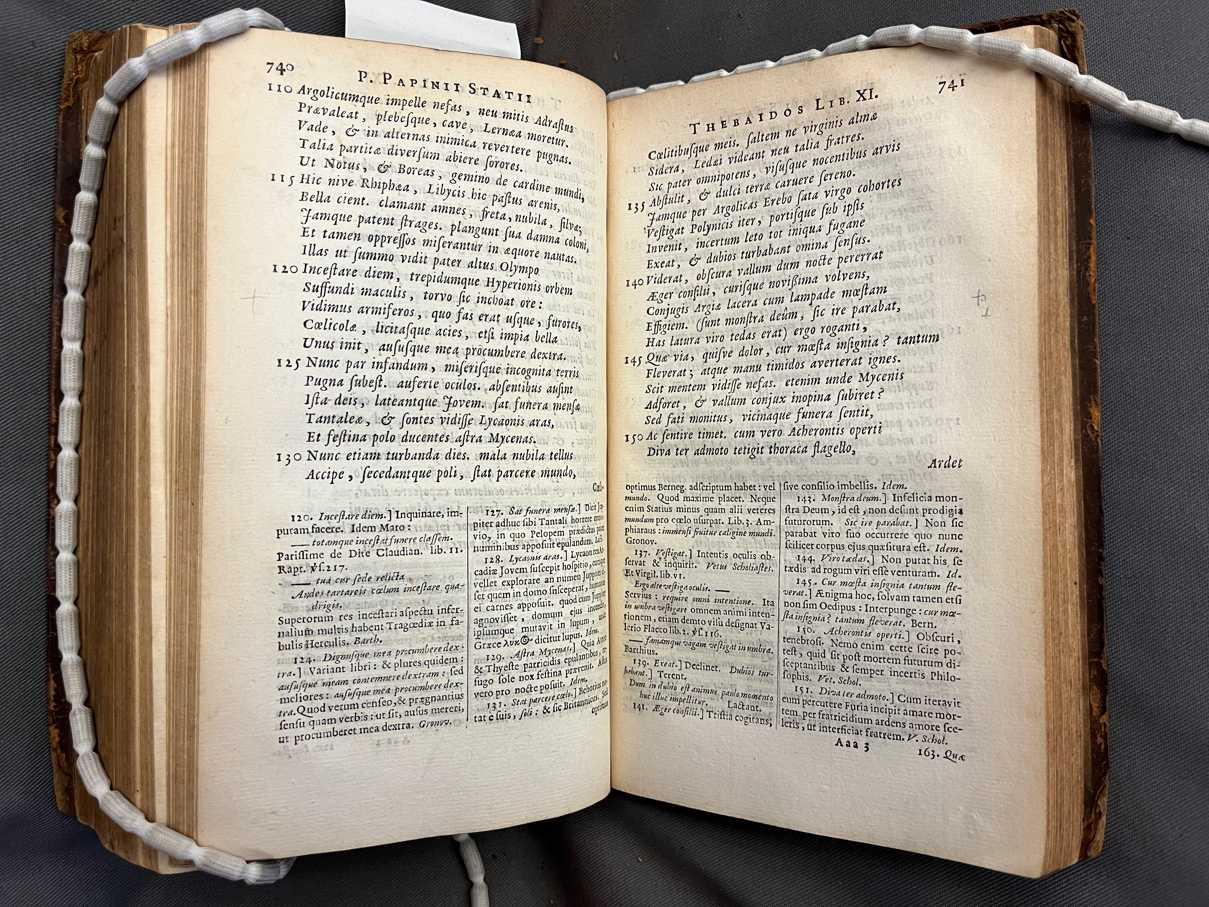 740
P. PAPINII STATII
110 Argolicumque impelle nefas, neu mitis Adraſtus
Prævaleat, plebeſque, cave, Lernæa moretur.
Vade, & in alternas inimica revertere pugnas.
Talia partitæ diverſum abiere ſorores.
Ut Notus, & Boreas, gemino de cardine mundi,
115 Hic nive Rhiphæa, Libycis hic paſtus arenis,
Bella cient. clamant amnes, freta, nubila, ſilvæ;
Jamque patent ſtrages. plangunt ſua damna coloni,
Et tamen oppreſſos miſerantur in æquore nautas.
Illas ut ſummo vidit pater altus Olympo
120 Inceſtare diem, trepidumque Hyperionis orbem
Suffundi maculis, torvo ſic inchoat ore:
Vidimus armiferos, quo fas erat uſque, furores,
Cœlicolæ, licitaſque acies, etſi impia bella
Unus init, auſuſque mea procumbere dextra.
125 Nunc par infandum, miſeriſque incognita terris
Pugna ſubeſt. auferte oculos. abſentibus auſint
Iſta deis, lateantque Jovem. ſat funera menſæ
Tantaleæ, & ſontes vidiſſe Lycaonis aras,
Et feſtina polo ducentes aſtra Mycenas.
130 Nunc etiam turbanda dies. mala nubila tellus
Accipe, ſecedantque poli, ſtat parcere mundo,
120. Inceſtare diem.] Inquinare, im-
puram facere. Idem Maro:
— totamque inceſtat funere claſſem.
Pariſſime de Dite Claudian. lib. 11.
Rapt. ℣ſ. 217.
— tua cur ſede relicta
Audes tartareis cœlum inceſtare qua-
drigis.
Superorum res inceſtari aſpectu infer-
nalium multis habent Tragœdiæ in fa-
bulis Herculis. Barth.
124. Dignuſque mea procumbere dex-
tra.] Variant libri: & plures quidem:
auſuſque meam contemnere dextram: ſed
meliores: auſuſque mea procumbere dex-
tra. Quod verum cenſeo, & prægnantius
ſenſu quam verbis: ut ſit, auſus mereri,
ut procumberet mea dextra. Gronov.
127. Sat funera menſæ.] Dicit Jup-
piter adhuc ſibi Tantali horrere convi-
vio, in quo Pelopem prædictus pater
numinibus appoſuit epulandum. Idem.
128. Lycaonis aras.] Lycaon rex Ar-
cadiæ Jovem ſuſcepit hoſpitio, cumque
vellet explorare an numen Juppiter eſ-
ſet quem in domo ſuſceperat, humanas
ei carnes appoſuit. quod cum Juppiter
agnoviſſet, domum ejus incendit,
ipſumque mutavit in lupum, unde
Græce λύκος dicitur lupus. Idem.
129. Aſtra Mycenas.] Quia Atreo
& Thyeſte patricidis epulantibus, re-
fugo ſole nox feſtina prævenit. Aſtra
vero pro nocte poſuit. Idem.
131. Stat parcere cœlo.] Behotius no-
tat e ſuis, ſuis: & ſic Britannicus. Sed
optimus
741
THEBAIDOS LIB. XI.
Cœlitibuſque meis. ſaltem ne virginis almæ
Sidera, Ledæi videant neu talia fratres.
Sic pater omnipotens, viſuſque nocentibus arvis
135 Abſtulit, & dulci terræ caruere ſereno.
Jamque per Argolicas Erebo ſata virgo cohortes
Veſtigat Polynicis iter, portiſque ſub ipſis
Invenit, incertum leto tot iniqua fugane
Exeat, & dubios turbabant omina ſenſus.
140 Viderat, obſcura vallum dum nocte pererrat
Æger conſilii, curiſque noviſſima volvens,
Conjugis Argiæ lacera cum lampade mœſtam
Effigiem. (ſunt monſtra deûm, ſic ire parabat,
Has latura viro tedas erat) ergo roganti,
145 Quæ via, quiſve dolor, cur mœſta inſignia? tantum
Fleverat; atque manu timidos averterat ignes.
Scit mentem vidiſſe nefas. etenim unde Mycenis
Adforet, & vallum conjux inopina ſubiret?
Sed fati monitus, vicinaque funera ſentit,
150 Ac ſentire timet. cum vero Acherontis operti
Diva ter admoto tetigit thoraca flagello,
Ardet
optimus Berneg. adſcriptum habet: vel
mundo. Quod maxime placet. Neque
enim Statius minus quam alii veteres
mundum pro cœlo uſurpat. Lib. 3. Am-
phiaraus: immenſi fruitur caligine mundi.
Gronov.
137. Veſtigat.] Intentis oculis ob-
ſervat & inquirit. Vetus Scholiaſtes.
Et Virgil. lib. vi.
Ergo alte veſtiga oculis. —
Servius: require omni intentione. Ita
in umbra veſtigare omnem animi inten-
tionem, etiam demto viſu deſignat Va-
lerio Flacco lib. 2. ℣ſ 116.
— famamque vagam veſtigat in umbra.
Barthius.
139. Exeat.] Declinet. Dubios tur-
babant.] Terent.
Dum in dubio eſt animus, paulo momento
huc illuc impellitur. Lactant.
141. Æger conſilii.] Triſtia cogitans,
ſive conſilio imbellis. Idem.
143. Monſtra deum.] Infelicia mon-
ſtra Deum, id eſt, non deſunt prodigia
futurorum. Sic ire parabat.] Non ſic
parabat viro ſuo occurrere quo nunc
ſcilicet corpus ejus quæſitura eſt. Idem.
144. Viro tædas.] Non putat his, ſe
tædis ad rogum viri eſſe venturam. Id.
145. Cur mœſta inſignia tantum fle-
verat.] Ænigma hoc, ſolvam tamen etſi
non ſim Oedipus: Interpunge: cur mœ-
ſta inſignia? tantum fleverat. Bern.
150. Acherontis operti.] Obſcuri,
tenebroſi. Nemo enim certe ſcire po-
teſt, quid ſit poſt mortem futurum di-
ſceptantibus & ſemper incertis Philo-
ſophis. Vet. Schol.
151. Diva ter admoto.] Cum iteravit
eum percutere Furia incipit amare mor-
tem, per fratricidium ardens amore ſce-
leris, ut interficiat fratrem. V. Schol.
Aaa 3
163. Quæ